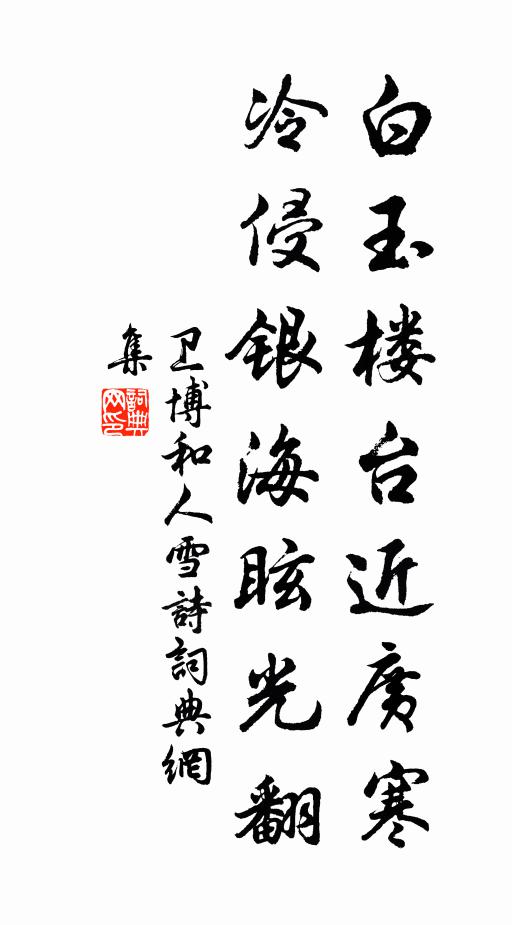 白玉楼台近廣寒
冷侵銀海眩光翻
卫博和人雪詩詞典網
集
詞典
网印